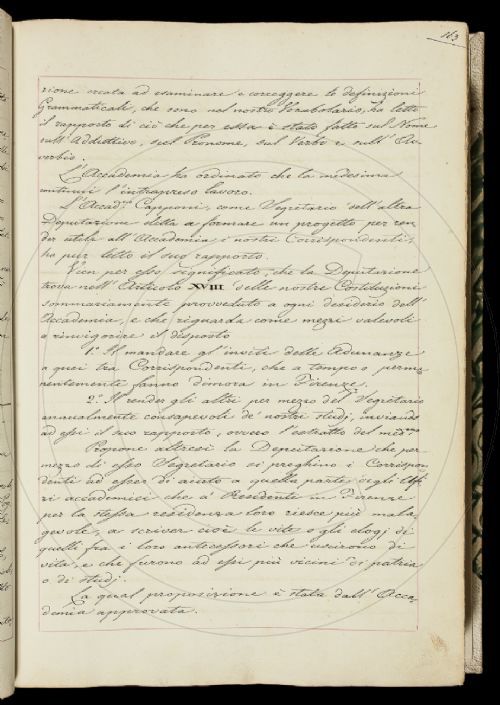 163
zione creata ad esaminare e correggere le definizioni
Grammaticali, che sono nel nostro Vocabolario, ha letto
il rapporto di ciò che per essa è stato fatto sul Nome
sull' Addiettivo, sul Pronome, sul Verbo e sull' Av-
verbio.
L'Accademia ha ordinato che la medesima
continui l'intrapreso lavoro.
L'Accad. Capponi, come Segretario dell' altra
Deputazione eletta a formare un progetto per ren-
der utili all' Accademia i nostri Corrispondenti,
ha pur letto il suo rapporto.
Vien per esso significato, che la Deputazione
trova nell' Articolo XVIII delle nostre Costituzioni
sommariamente provveduto a ogni desiderio dell'
Accademia, e che riguarda come mezzi valevoli
a rinvigorire il disposto
1.° Il mandare gl'inviti delle Adunanze
a quei tra Corrispondenti, che a tempo o perma-
nentemente fanno dimora in Firenze.
2.° Il render gli altri per mezzo del Segretario
annualmente consapevoli de' nostri studj, inviando
ad essi il suo rapporto, ovvero l'estratto del med.mo
Propone altresì la Deputazione che per
mezzo di esso Segretario si preghino i Corrispon-
denti ad esser di aiuto a quella parte degli Uffi-
zi accademici che a' Residenti in Firenze
per la stessa residenza loro riesce più mala-
gevole, a scriver cioè le vite o gli elogj di
quelli fra i loro antecessori che uscirono di
vita, e che furono ad essi più vicini di patria
o di studj.
La qual proposizione è stata dall' Acca-
demia approvata.